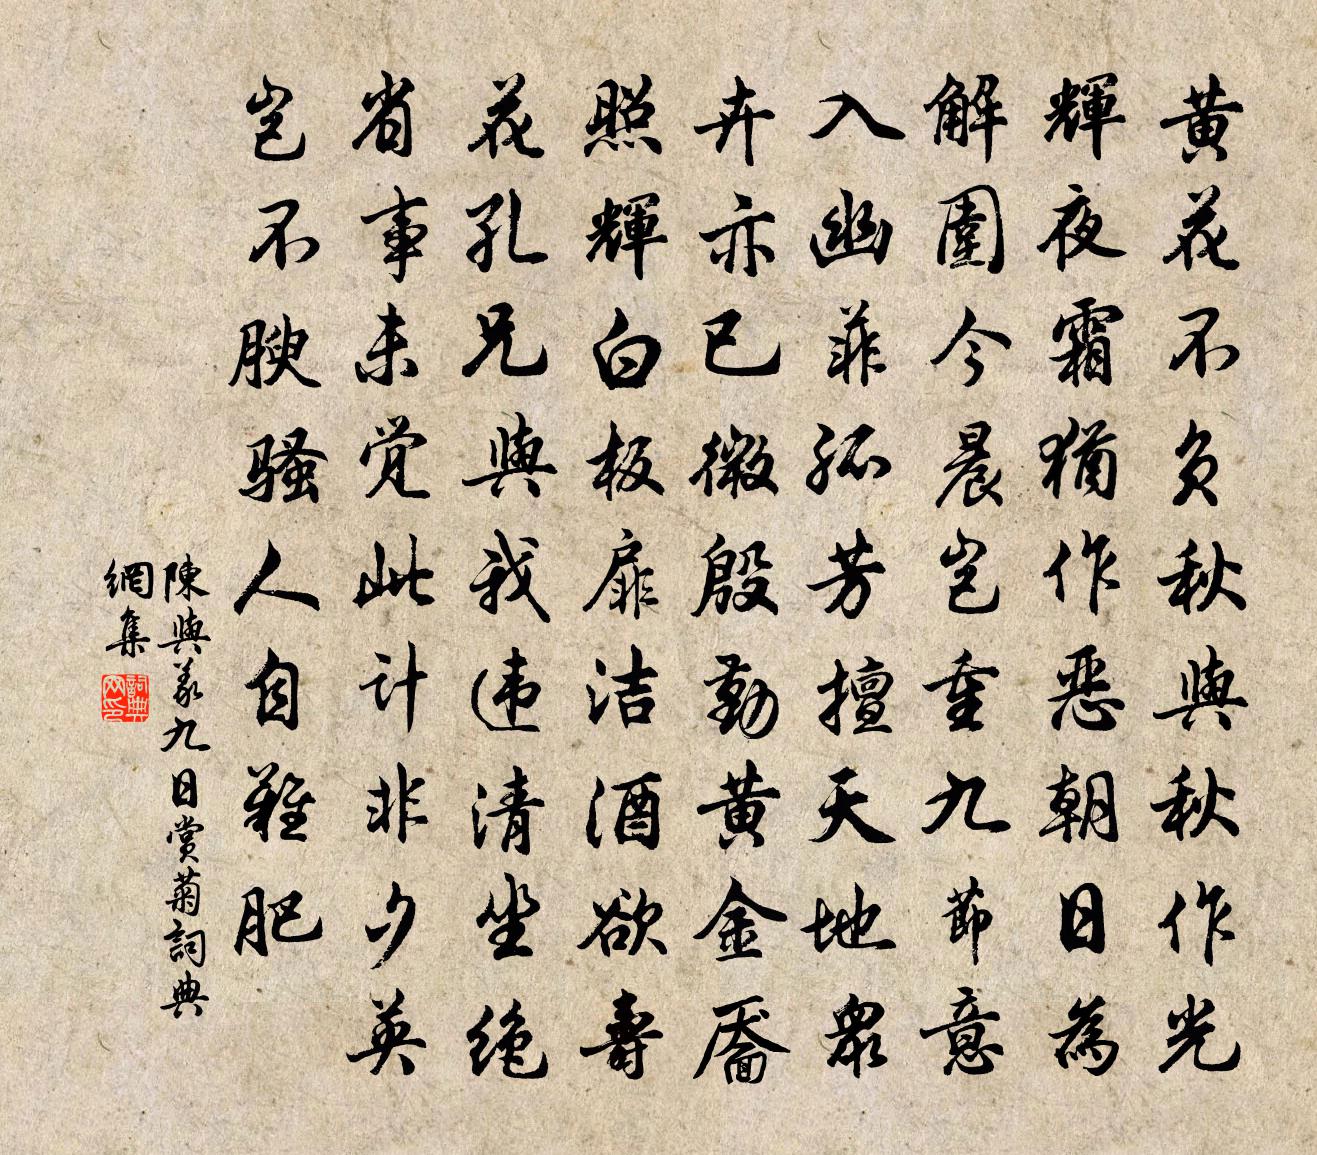 黄花不負秋與秋作光
輝夜霜猶作惡朝日為
解圍今晨豈重九節意
入幽菲孤芳擅天地衆
卉亦已微殷勤黄金靨
照輝白板扉洁酒欲壽
花孔兄與我违清坐绝
省事未觉此计非夕英
豈不腴騷人自難肥
陳與義九日赏菊詞典
網集
詞典网印